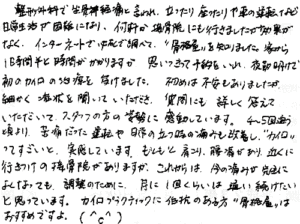 整形外科で坐骨神経痛と言われ、立ったり座ったりや車の運転など
日常生活が困難になり、何軒か接骨院にも行きましたが効果が
なく、インターネットで必死で調べて、"骨格屋"を知りました。家から
1時間半と時間がかかりますが 思いきって予約をいれ、夜勤明けで
初のカイロの治療を受けました。 初めは不安もありましたが、
細かく症状を聞いていただき、質問にも詳しく答えて
いただいて、スタッフの方の笑顔に感動しています。4〜5回あり
頃より、苦痛だった運転や日常の立つ時の痛みも改善し、"カイロ"
ってすごいと、実感しています。もともと肩こり、腰痛があり、近くに
行きつけの接骨院がありますが、これからは、今の痛みが完治に
なっても、調整のために、月に1回くらいは通い続けたい
と思っています。カイロプラクティックに抵抗のある方"骨格屋"は
おすすめですよ。(^o^)